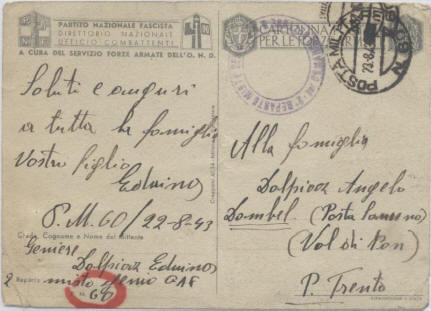 PARTITO NAZIONALE FASCISTA
DIRETTORIO NAZIONALE
UFFICIO COMBATTENTI
A CURA DEL SERVIZIO FORZE ARMATE DELL'O. N. D.
Saluti e auguri
a tutta la famiglia
Vostro figlio
Eduino
P.M. 60/22-8-43
Grado, Cognome e Nome del Mittente
Geniere
Dolpiaz Eduino
2 Reparto misto genio GAF
P. M. 60
CARTOLINA
PER LE FOR
POSTA MILIT
N. 60
23-8-43
Alla famiglia
Dolpiaz Angelo
Dambel (Posta Sanzeno)
(Val di Non)
P. Trento